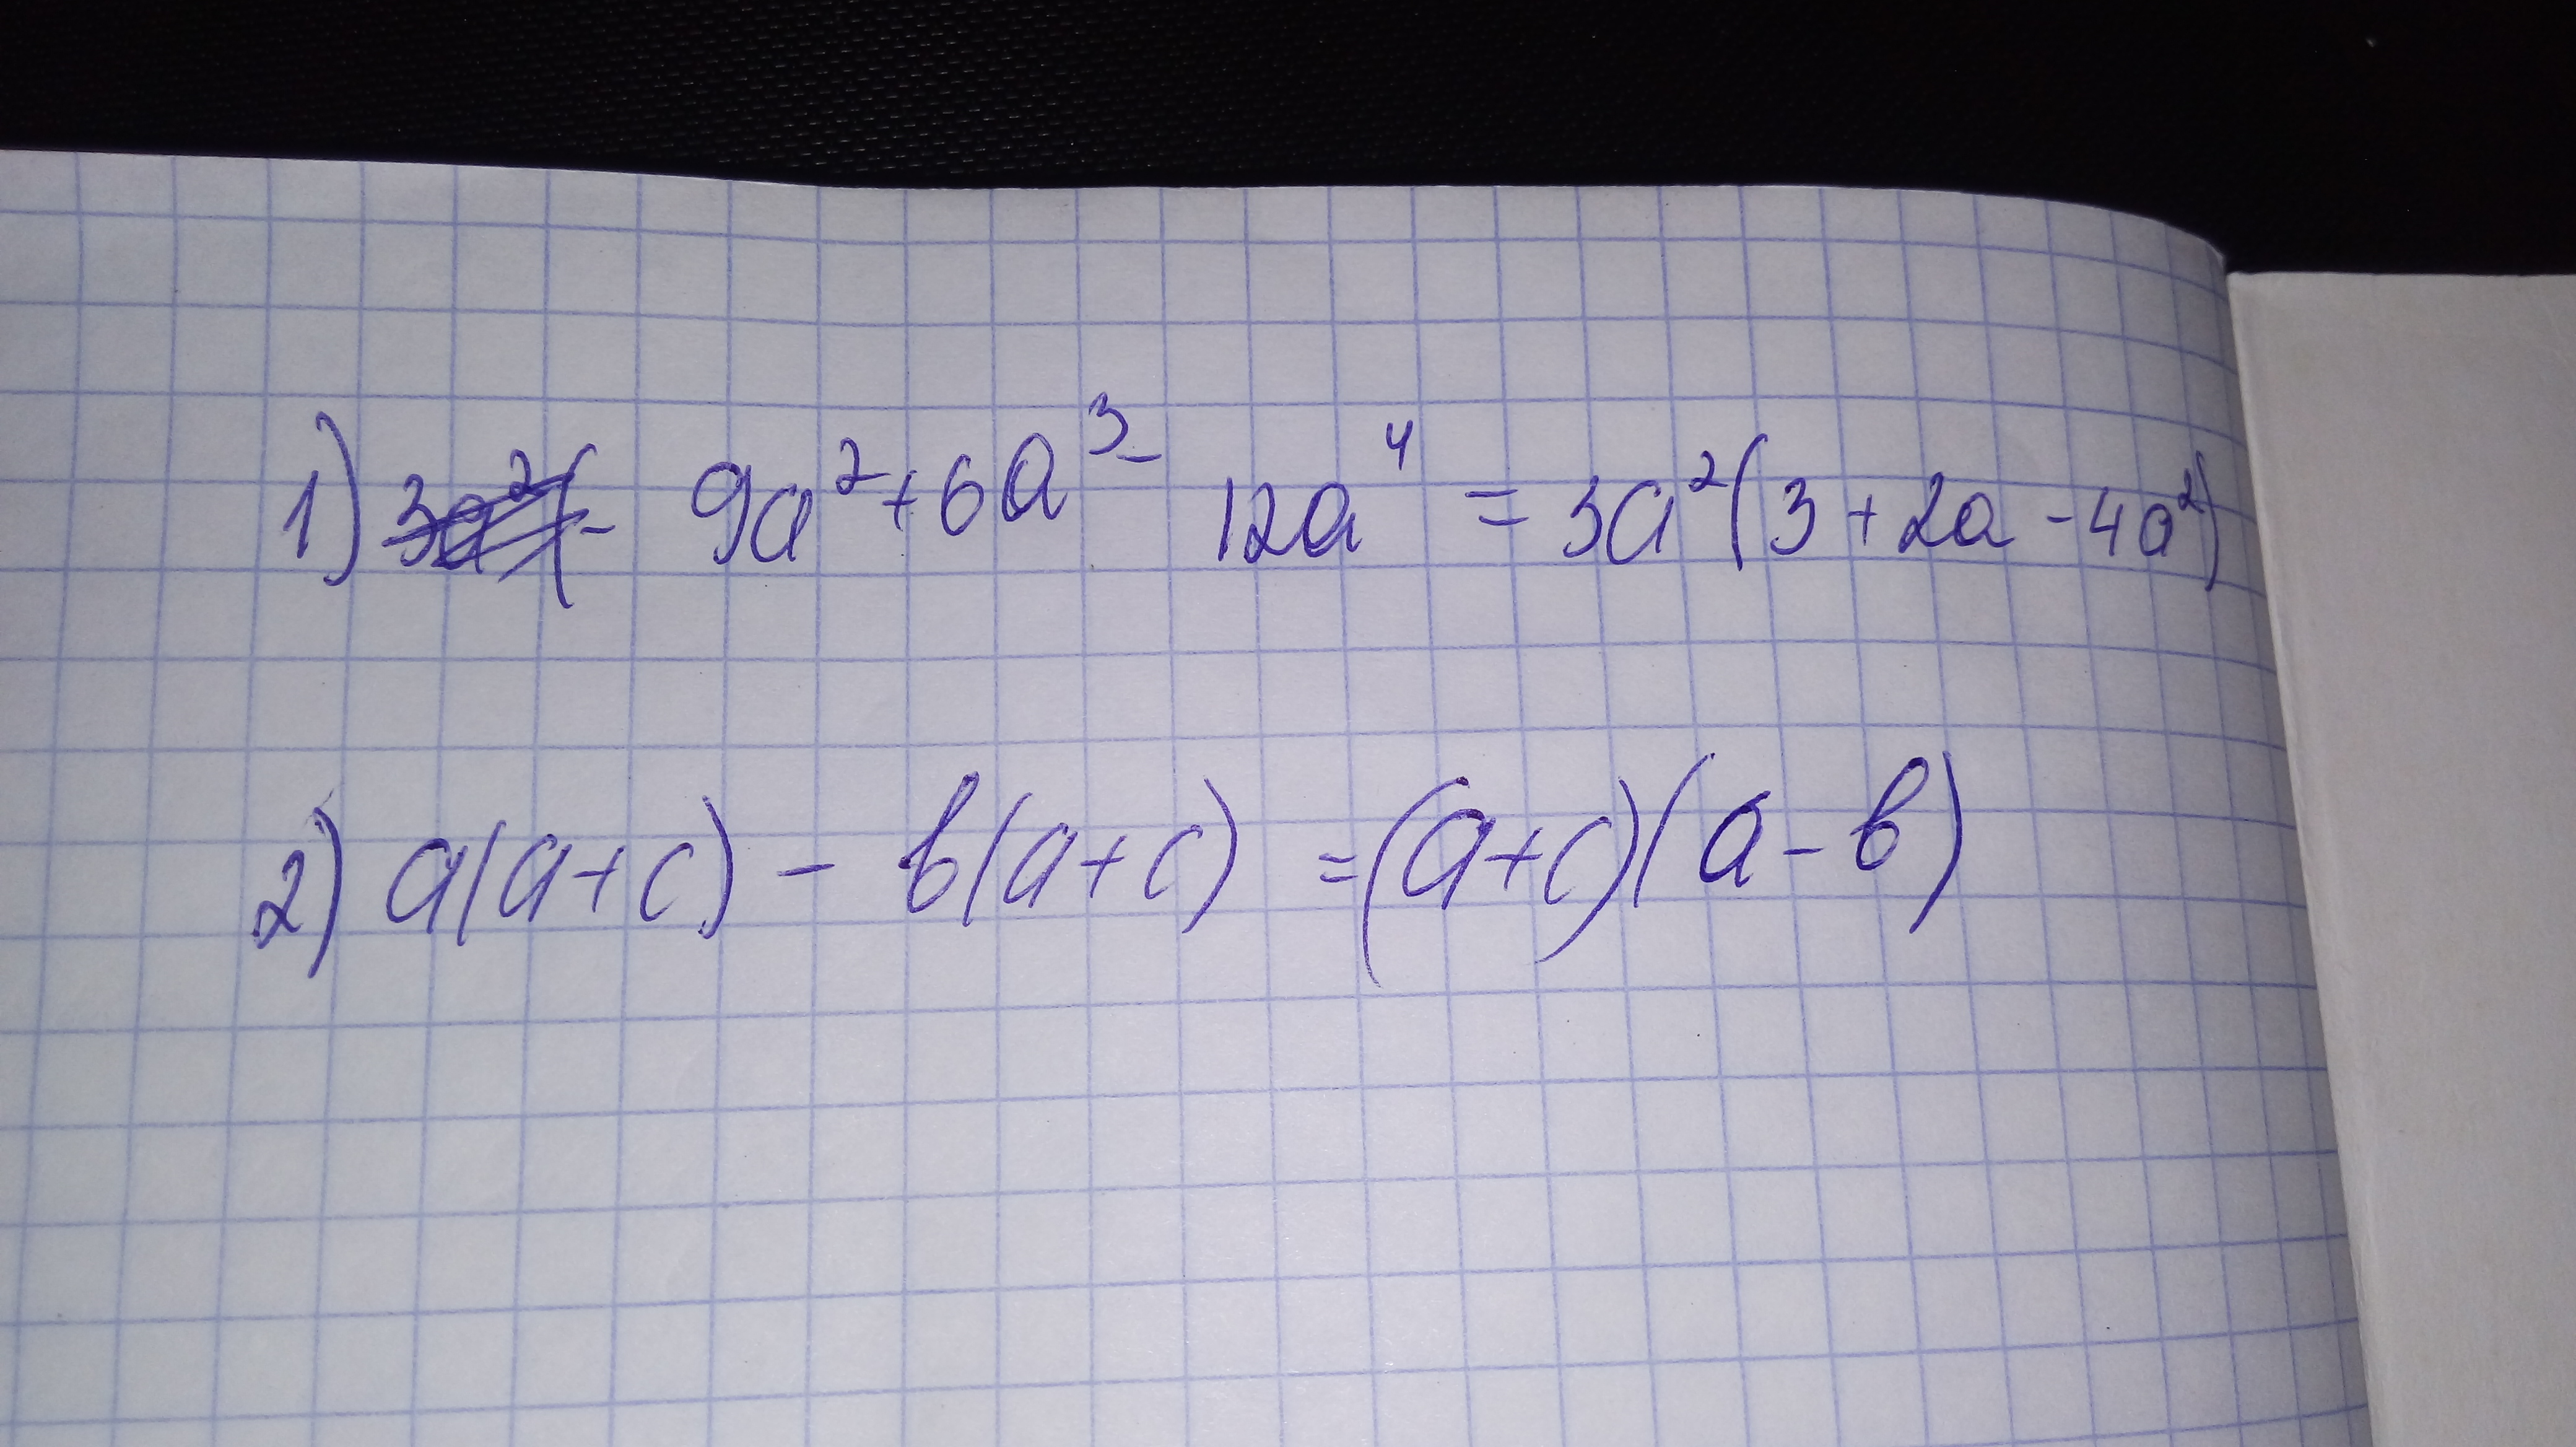 1) 9a²+6a³- 12a⁴ = 3a²(3+2a-4a²)
2) a(a+c) - b(a+c) =(a+c)(a-b)